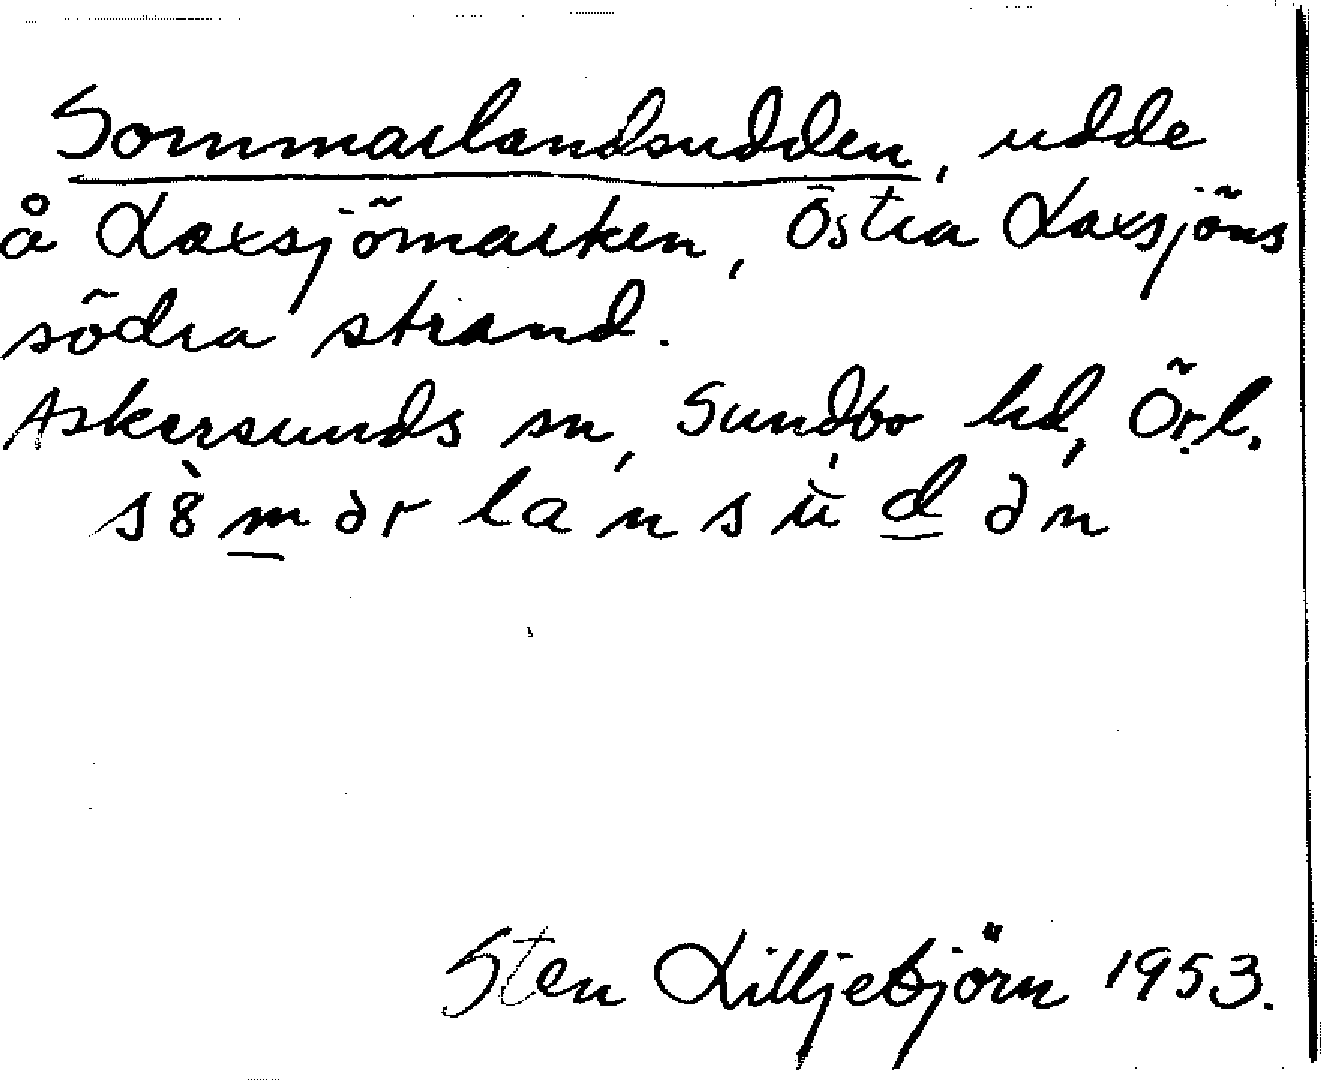 Sommarlandsudden, udde
å Laxsjömarken, Östra Laxsjöns
södra strand.
Askersunds sn, Sundbo hd, Örl.
s8̀m̲ər lansùd̲ən
Sten Lilljebjörn 1953.